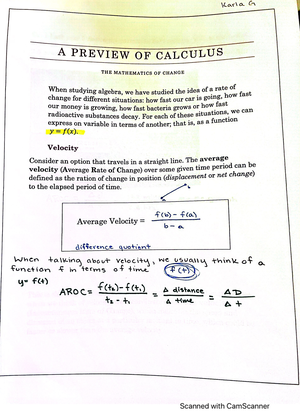 Karla G
A PREVIEW OF CALCULUS
THE MATHEMATICS OF CHANGE
When studying algebra, we have studied the idea of a rate of
change for different situations: how fast our car is going, how fast
our money is growing, how fast bacteria grows or how fast
radioactive substances decay. For each of these situations, we can
express on variable in terms of another; that is, as a function
y = f(x).
Velocity
Consider an option that travels in a straight line. The average
velocity (Average Rate of Change) over some given time period can be
defined as the ration of change in position (displacement or net change)
to the elapsed period of time.
Average Velocity = f(b) - f(a) / b - a
difference quotient
When talking about velocity, we usually think of a
function f in terms of time f(t)
y = f(t)
AROC = f(t₂) - f(t₁) / t₂ - t₁ = Δ distance / Δ time = ΔD / Δt
Scanned with CamScanner